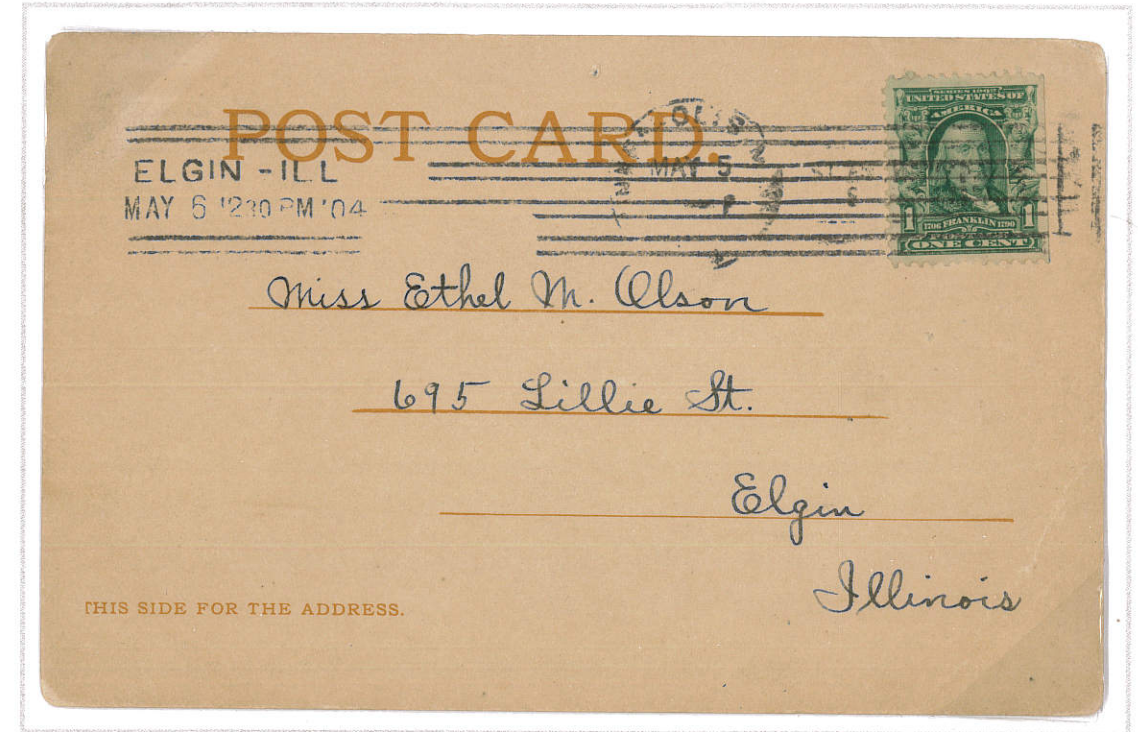 POST CARD.
ELGIN - ILL
MAY 6 1230 PM '04
MAY 5
SERIES 1902
UNITED STATES OF
AMERICA
1 1706 FRANKLIN 1790 1
ONE CENT
Miss Ethel M. Olson
695 Lillie St.
Elgin
Illinois
THIS SIDE FOR THE ADDRESS.